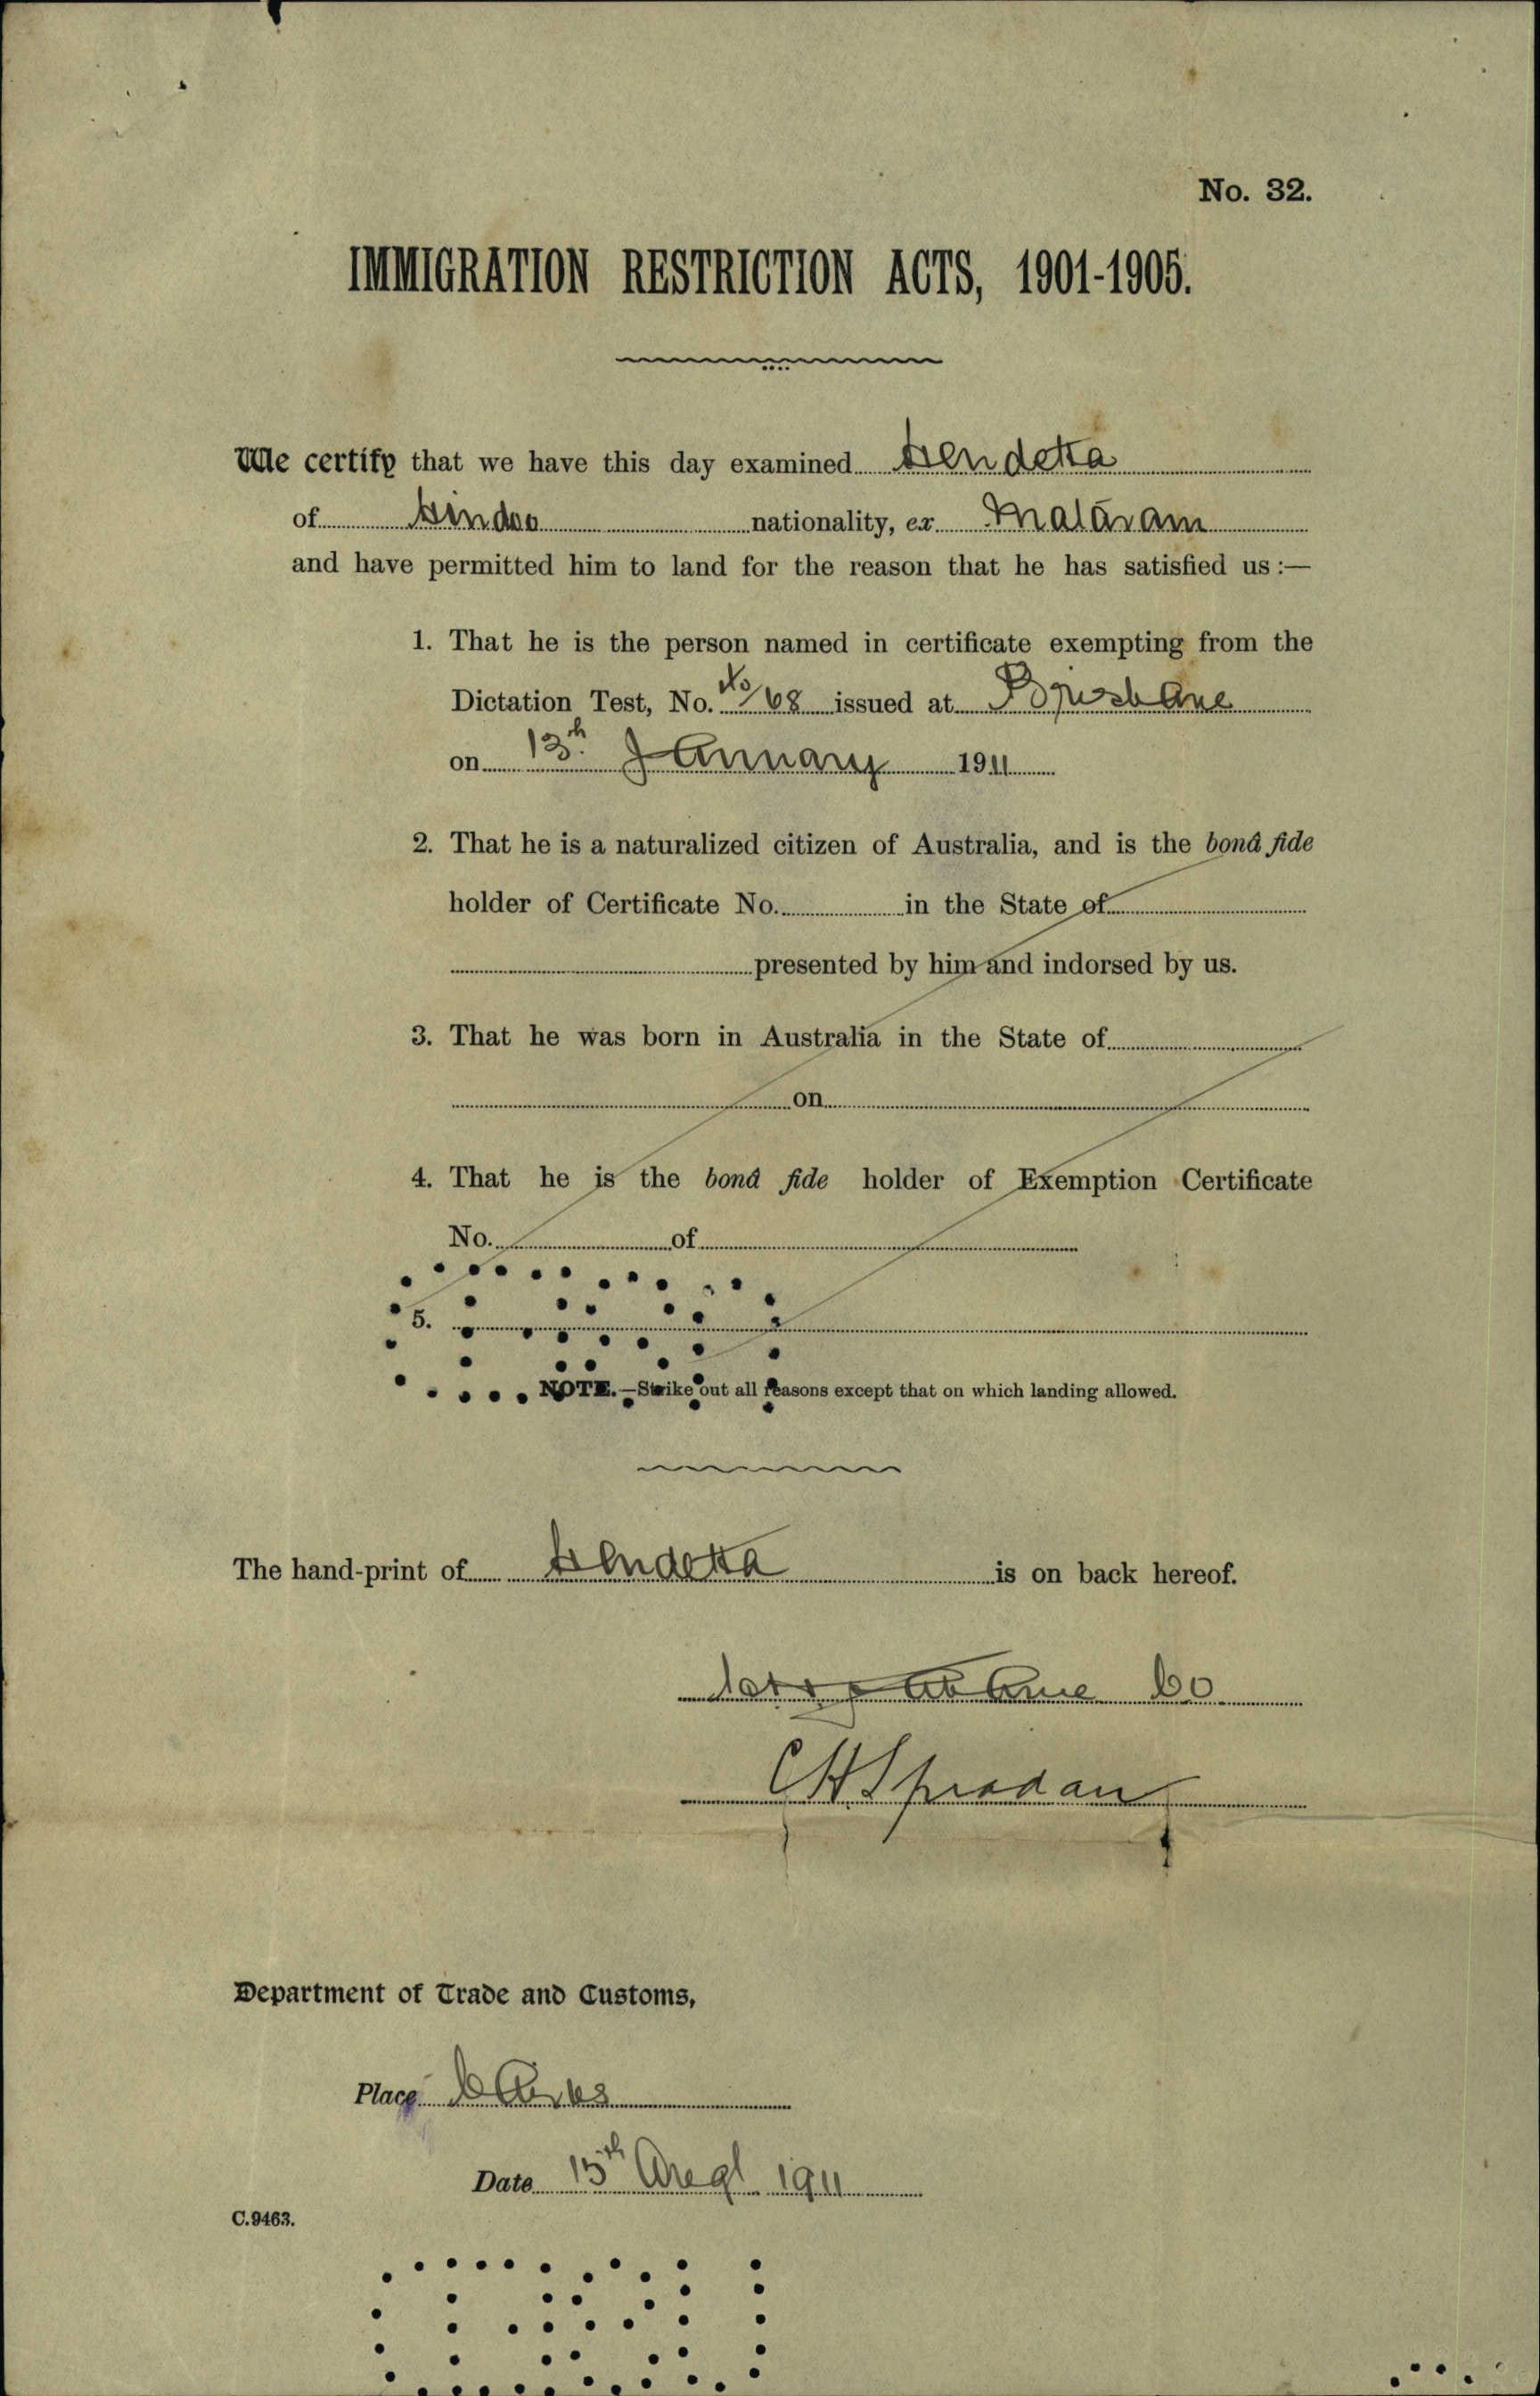 No. 32.
IMMIGRATION RESTRICTION ACTS, 1901-1905.
We certify that we have this day examined Hendetta
of Hindoo nationality, ex Mataram
and have permitted him to land for the reason that he has satisfied us:—
1. That he is the person named in certificate exempting from the
Dictation Test, No. 10/68 issued at Brisbane
on 13th January 1911
2. That he is a naturalized citizen of Australia, and is the bonâ fide
holder of Certificate No. in the State of
presented by him and indorsed by us.
3. That he was born in Australia in the State of
on
4. That he is the bonâ fide holder of Exemption Certificate
No. of
5.
NOTE.—Strike out all reasons except that on which landing allowed.
The hand-print of Hendetta is on back hereof.
Co
C H Spradan
Department of Trade and Customs,
Place Cairns
Date 15th Augt 1911
C.9463.